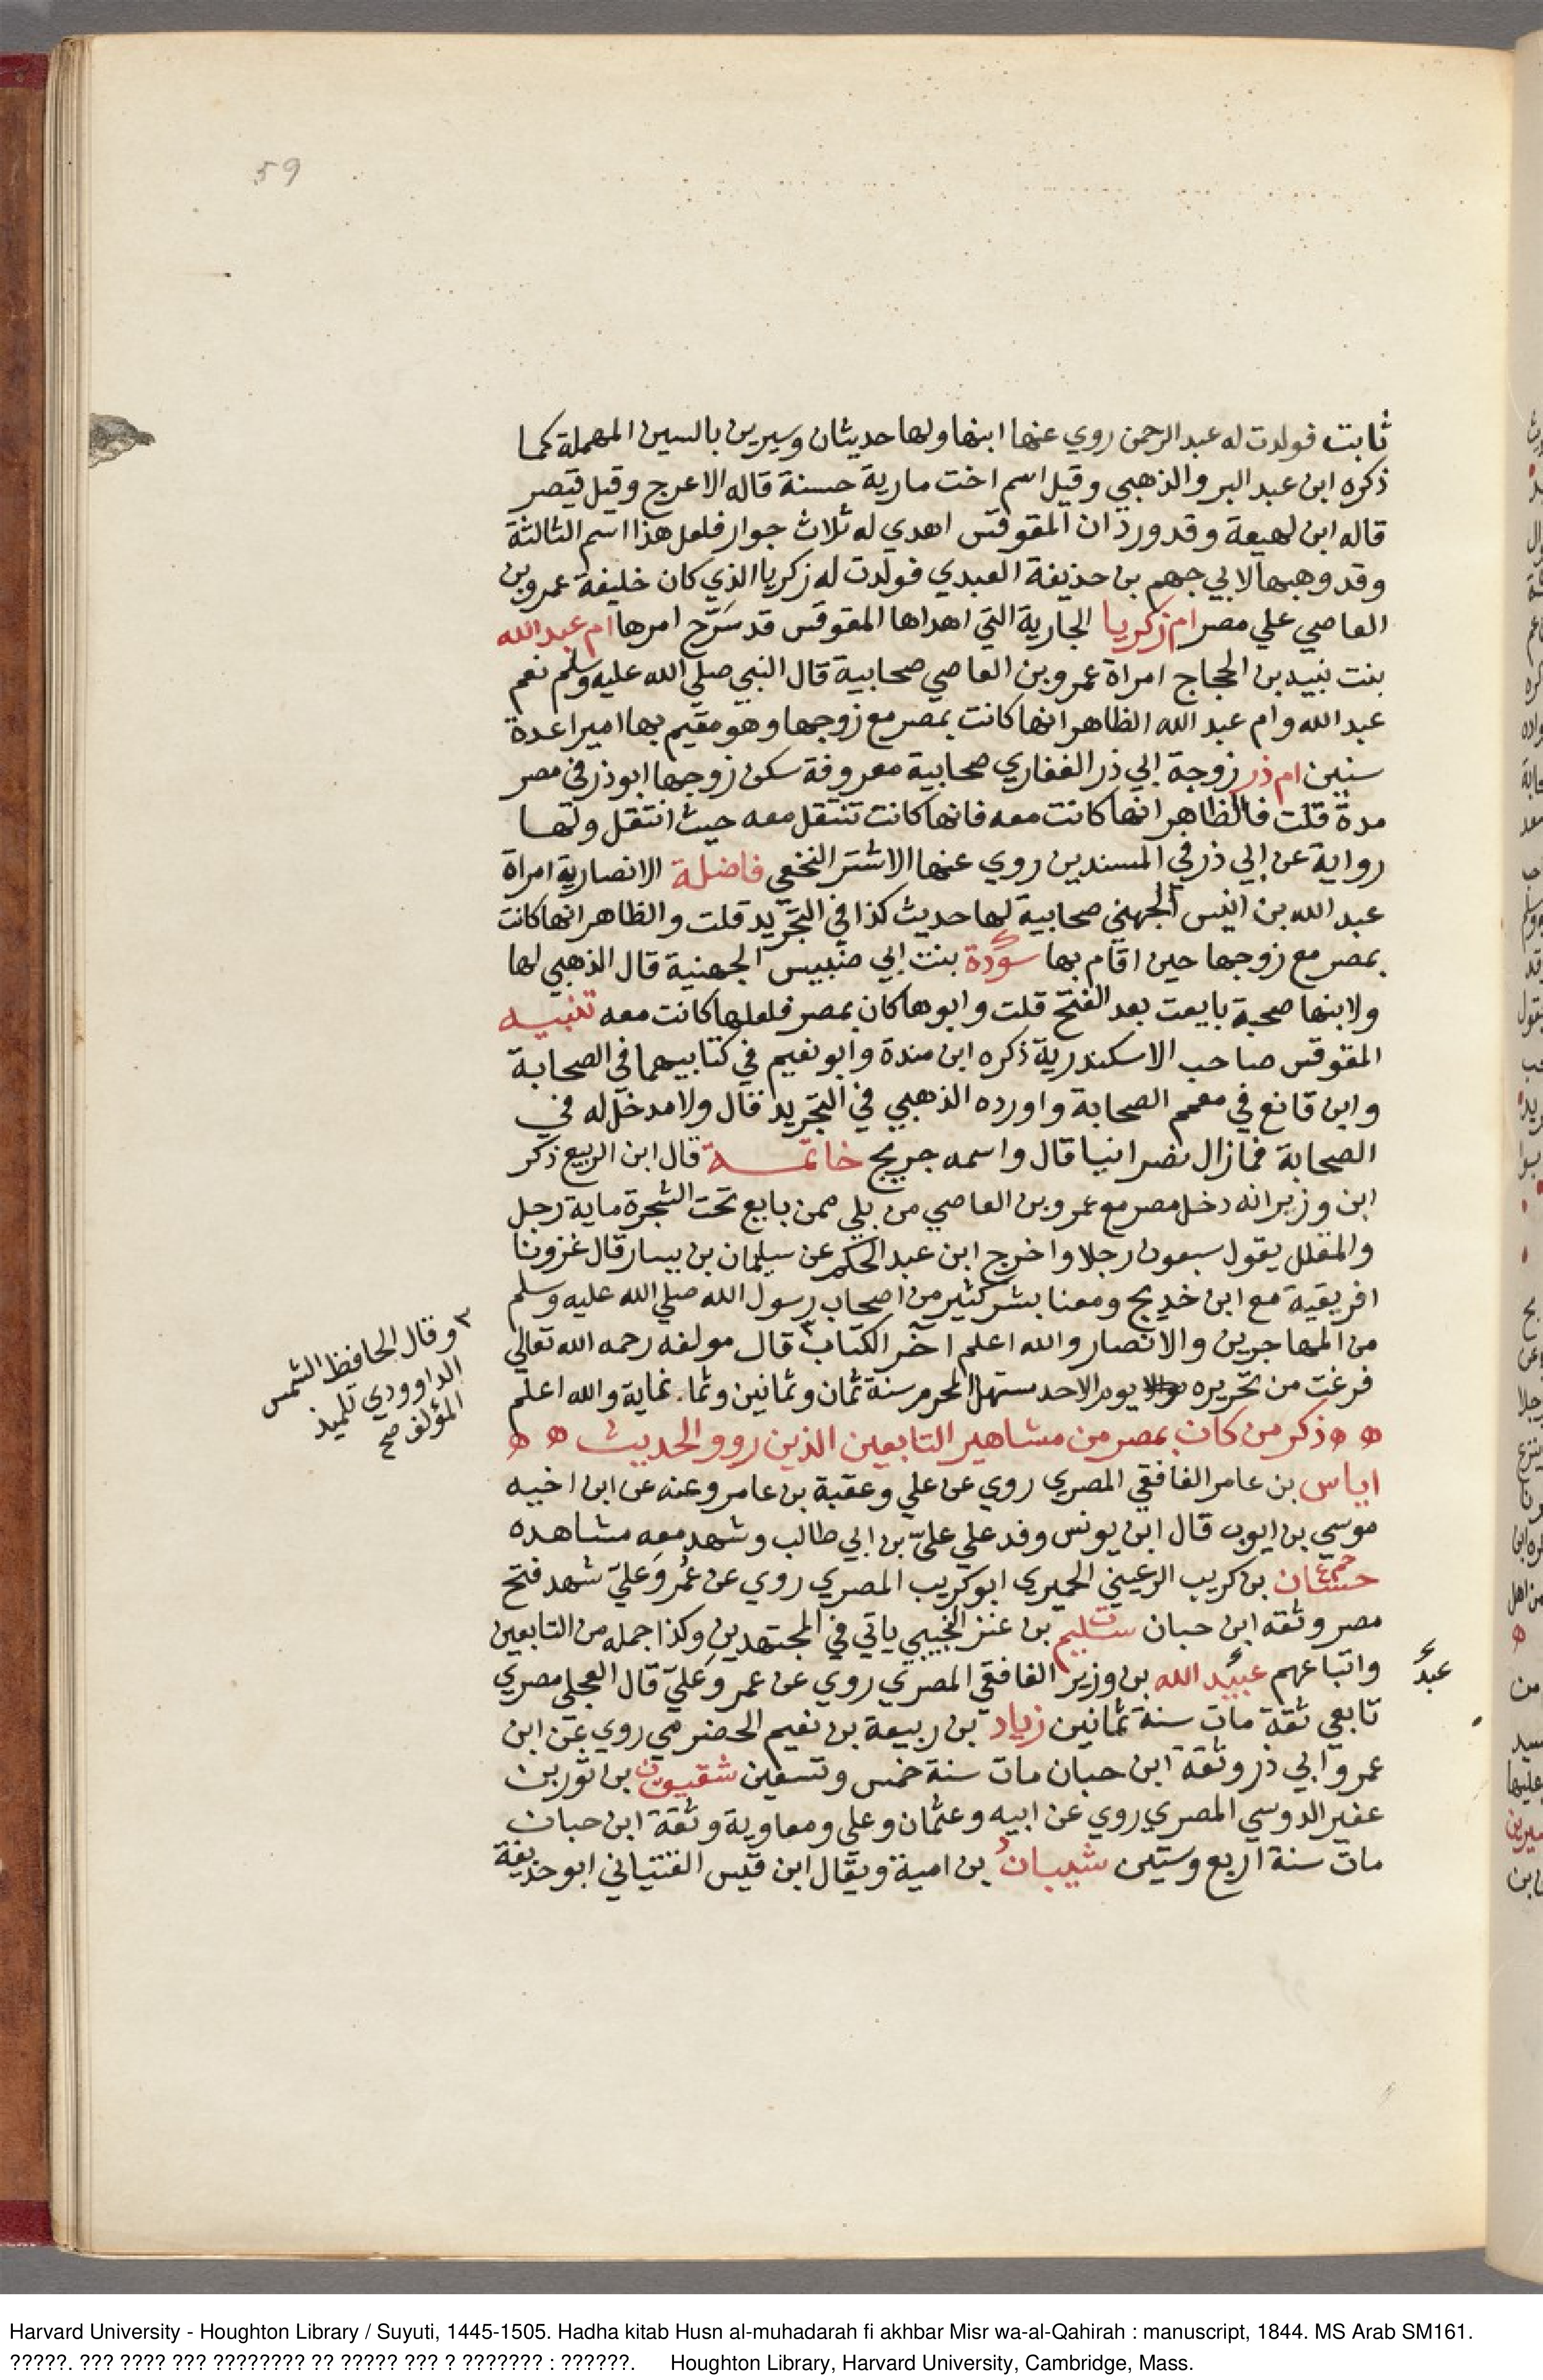 59
ثابت فولدت له عبد الرحمن روي عنها ابنها ولها حديثان وسيرين بالسين المهملة كما
ذكره ابن عبد البر والذهبي وقيل اسم اخت مارية حسنة قاله الاعرج وقيل قيصر
قاله ابن لهيعة وقد ورد ان المقوقس اهدي له ثلاث جوار فلعل هذا اسم الثالثة
وقد وهبها لابي جهم بن حذيفة العبدي فولدت له زكريا الذي كان خليفة عمرو بن
العاصي علي مصر ام زكريا الجارية التي اهداها المقوقس قد سَرّح امرها ام عبد الله
بنت نبيه بن الحجاج امراة عمرو بن العاصي صحابية قال النبي صلي الله عليه وسلم نعم
عبد الله وام عبد الله الظاهر انها كانت بمصر مع زوجها وهو مقيم بها اميرا عدة
سنين ام ذر زوجة ابي ذر الغفاري صحابية معروفة سكن زوجها ابوذر في مصر
مدة قلت فالظاهر انها كانت معه فانها كانت تنتقل معه حيث انتقل ولها
رواية عن ابي ذر في المسندين روي عنها الاشتر النخعي فاضلة الانصارية امراة
عبد الله بن انيس الجهني صحابية لها حديث كذا في التجريد قلت والظاهر انها كانت
بمصر مع زوجها حين اقام بها سودة بنت ابي ضبيس الجهنية قال الذهبي لها
ولابنها صحبة بايعت بعد الفتح قلت وابوها كان بمصر فلعلها كانت معه تنبيه
المقوقس صاحب الاسكندرية ذكره ابن مندة وابو نعيم في كتابيهما في الصحابة
وابن قانع في معجم الصحابة واورده الذهبي في التجريد فقال ولا مدخل له في
الصحابة فمازال نصرانيا قال واسمه جريج خاتمة قال ابن الربيع ذكر
ابن وزير انه دخل مصر مع عمرو بن العاصي من بلي ممن بايع تحت الشجرة ماية رجل
والمقلل يقول سبعون رجلا واخرج ابن عبد الحكم عن سليمان بن يسار قال غزونا
افريقية مع ابن خديج ومعنا بشر كثير من اصحاب رسول الله صلي الله عليه وسلم
من المهاجرين والانصار والله اعلم آخر الكتاب ٣ قال مولفه رحمه الله تعالي
فرغت من تحريره يوم الاحد مستهل المحرم سنة ثمان وثمانين وثمانماية والله اعلم
٣ وقال الحافظ الشمس
الداوودي تلميذ
المؤلف صح
ه ه ذكر من كان بمصر من مشاهير التابعين الذين رووا الحديث ه ه
اياس بن عامر الغافقي المصري روي عن علي وعقبة بن عامر وعنه عن ابن اخيه
موسي بن ايوب قال ابن يونس وفد علي عليّ بن ابي طالب وشهد معه مشاهده
حسان بن كريب الرعيني الحميري ابو كريب المصري روي عن عُمر وَعليّ شهد فتح
مصر وثقه ابن حبان سليم بن عنز التجيبي ياتي في المجتهدين وكذا جمله من التابعين
واتباعهم عبيد الله بن وزير الغافقي المصري روي عن عمر وَعليّ قال العجلي مصري
عبد
تابعي ثقة مات سنة ثمانين زياد بن ربيعة بن نعيم الحضرمي روي عن ابن
عمر وابي ذر وثقه ابن حبان مات سنة خمس وتسعين شقيق بن ثور بن
عفير الدوسي المصري روي عن ابيه وعثمان وعلي ومعاوية وثقة ابن حبان
مات سنة اربع وستين شيبان بن امية ويقال ابن قيس القتباني ابو حذيفة
Harvard University - Houghton Library / Suyuti, 1445-1505. Hadha kitab Husn al-muhadarah fi akhbar Misr wa-al-Qahirah : manuscript, 1844. MS Arab SM161.
?????. ??? ???? ??? ???????? ?? ????? ??? ? ??????? : ??????. Houghton Library, Harvard University, Cambridge, Mass.